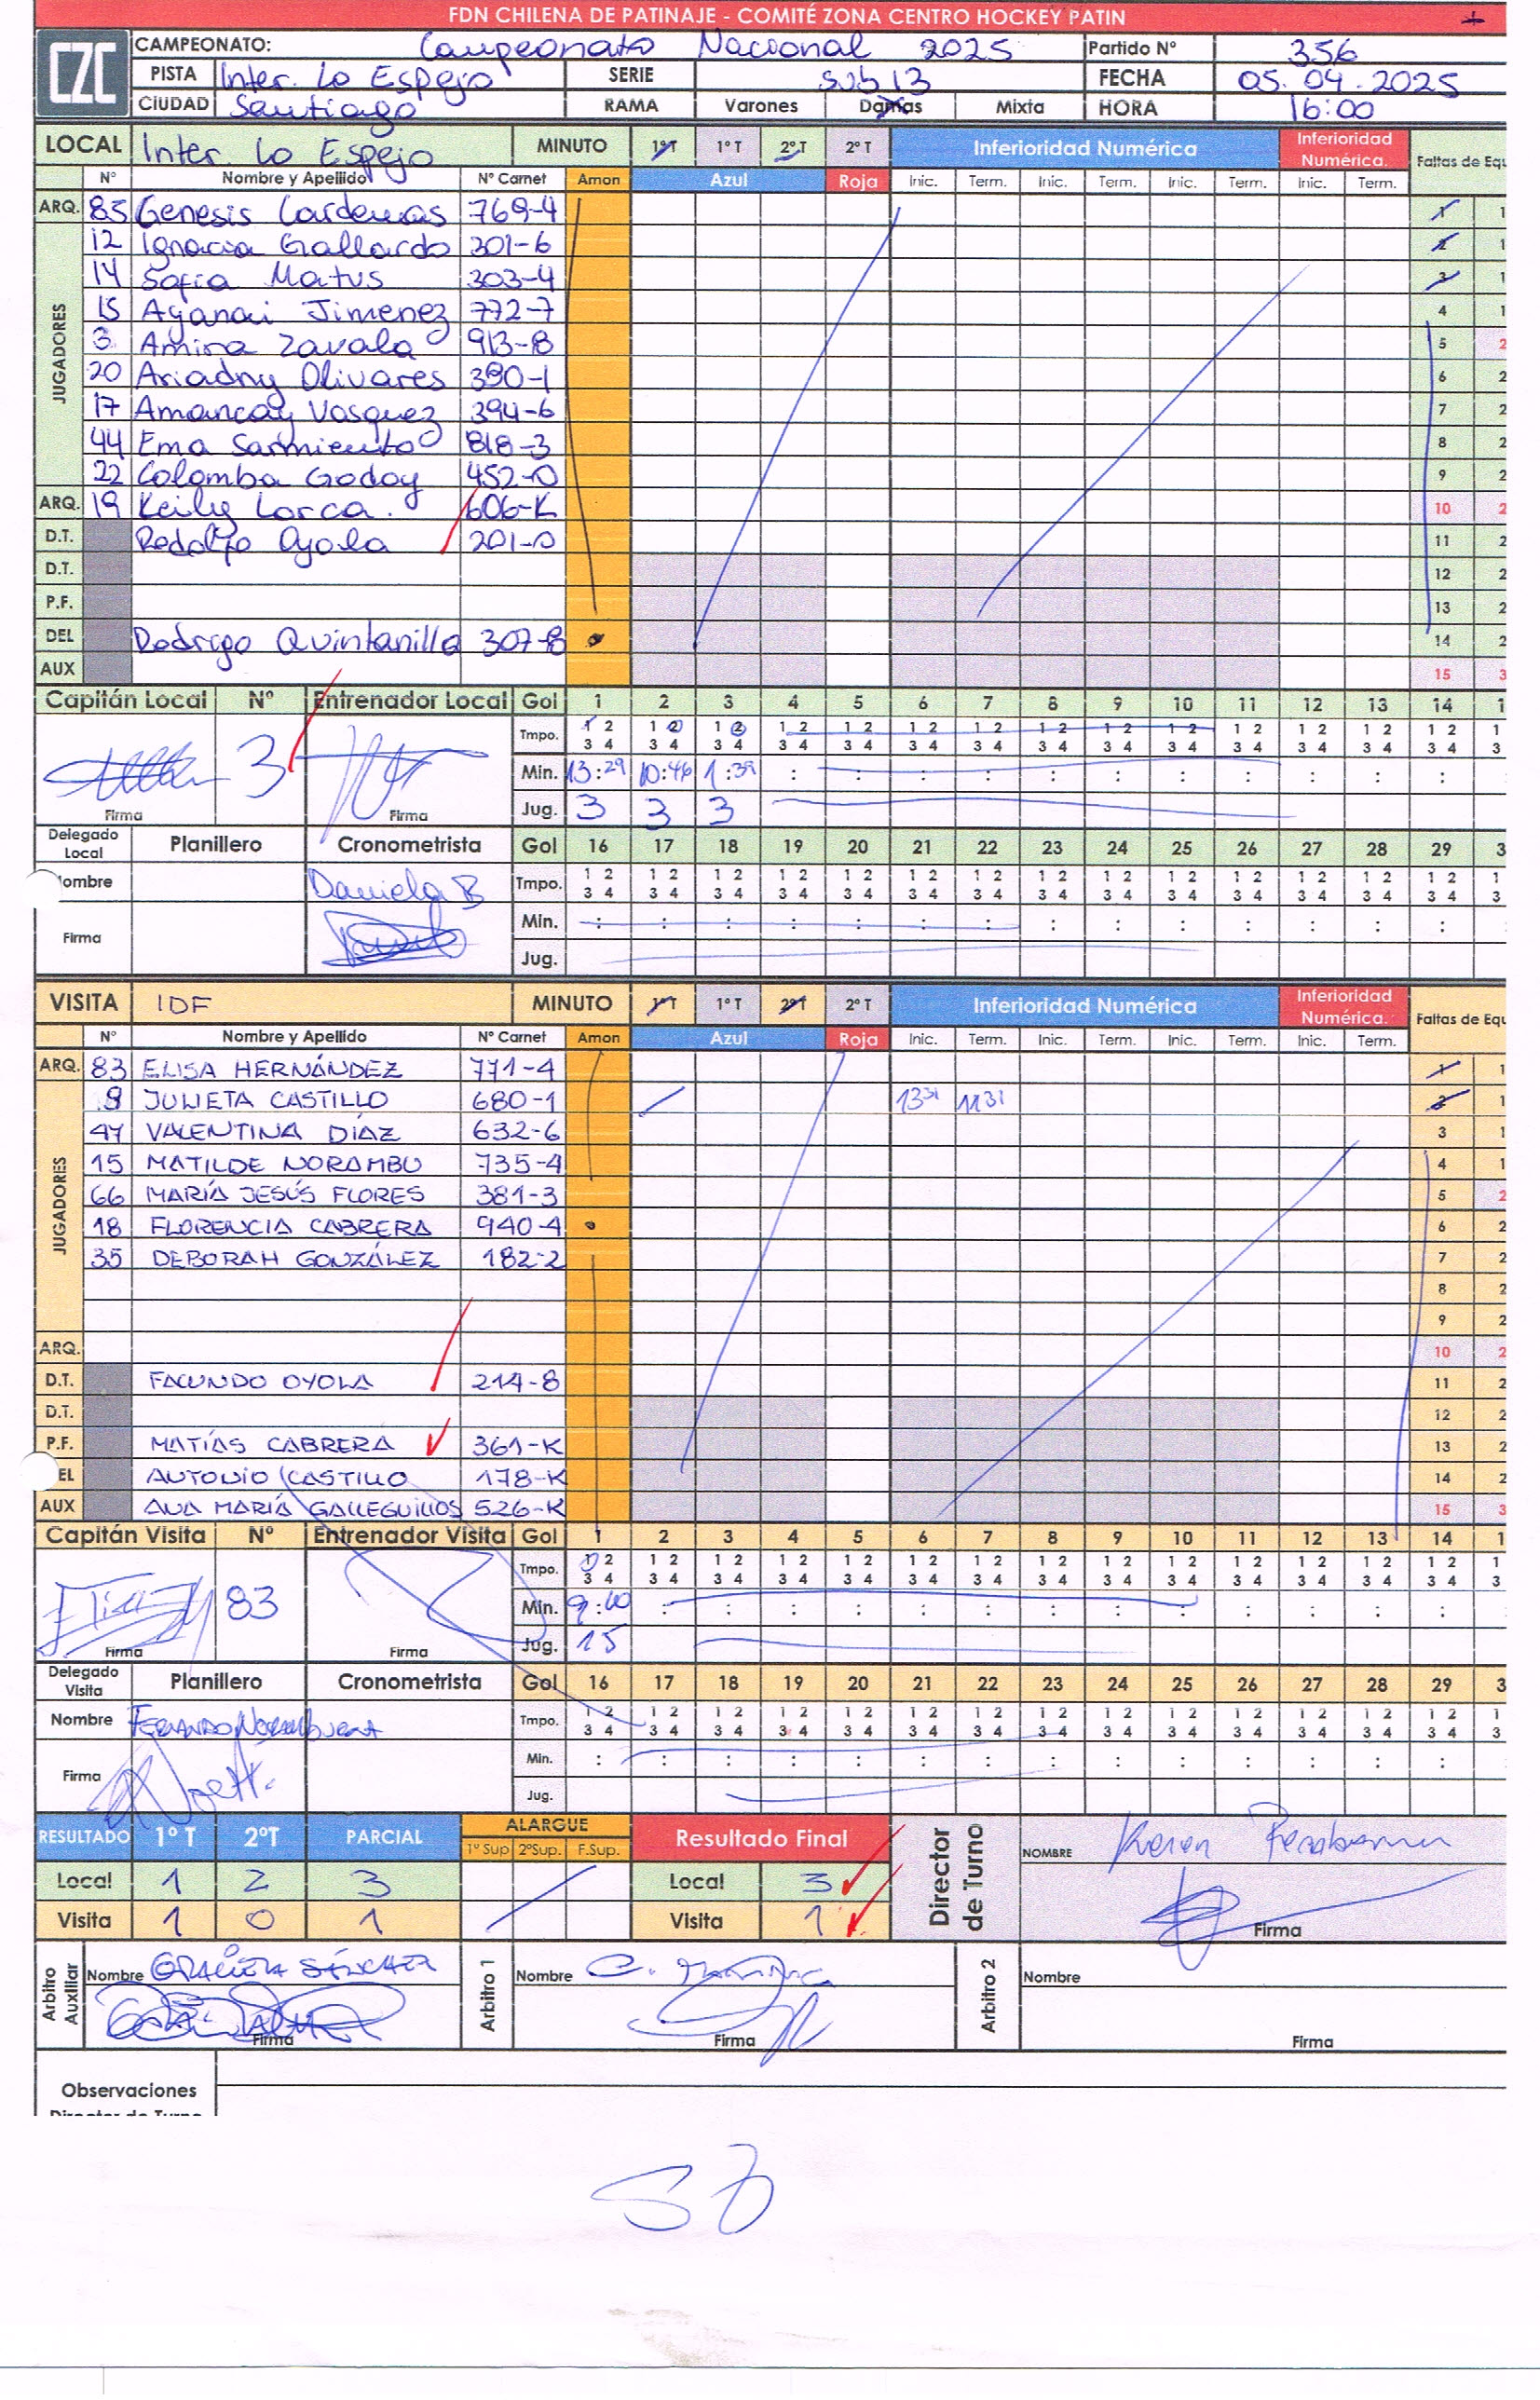 FDN CHILENA DE PATINAJE - COMITÉ ZONA CENTRO HOCKEY PATIN
CZC
CAMPEONATO: Campeonato Nacional 2025 Partido Nº 356
PISTA Inter. Lo Espejo SERIE sub 13 FECHA 05.04.2025
CIUDAD Santiago RAMA Varones Damas Mixta HORA 16:00
LOCAL Inter. Lo Espejo MINUTO 1ºT 1º T 2º.T 2º T Inferioridad Numérica Inferioridad Numérica. Faltas de Equ
Nº Nombre y Apellido Nº Carnet Amon Azul Roja Inic. Term. Inic. Term. Inic. Term. Inic. Term.
ARQ. 85 Genesis Cardenas 769-4 1 1
JUGADORES
12 Ignacia Gallardo 301-6 2 1
14 Sofia Matus 303-4 3 1
15 Ayanai Jimenez 772-7 4 1
3 Amira Zavala 913-8 5 2
20 Ariadny Olivares 390-1 6 2
17 Amancay Vasquez 394-6 7 2
44 Ema Sarmiento 818-3 8 2
22 Colomba Godoy 452-0 9 2
ARQ. 19 Keily Lorca. 606-K 10 2
D.T. Rodolfo Oyola 201-0 11 2
D.T. 12 2
P.F. 13 2
DEL Rodrigo Quintanilla 307-8 14 2
AUX 15 3
Capitán Local Nº Entrenador Local Gol 1 2 3 4 5 6 7 8 9 10 11 12 13 14 1
Tmpo. 1 2 1 2 1 2 1 2 1 2 1 2 1 2 1 2 1 2 1 2 1 2 1 2 1 2 1 2 1
3 4 3 4 3 4 3 4 3 4 3 4 3 4 3 4 3 4 3 4 3 4 3 4 3 4 3 4 3
3 Min. 13:29 10:46 1:39 : : : : : : : : : : :
Firma Firma Jug. 3 3 3
Delegado Local Planillero Cronometrista Gol 16 17 18 19 20 21 22 23 24 25 26 27 28 29 3
Nombre Daniela B Tmpo. 1 2 1 2 1 2 1 2 1 2 1 2 1 2 1 2 1 2 1 2 1 2 1 2 1 2 1 2 1
3 4 3 4 3 4 3 4 3 4 3 4 3 4 3 4 3 4 3 4 3 4 3 4 3 4 3 4 3
Firma Min. : : : : : : : : : : : : : :
Jug.
VISITA IDF MINUTO 1ºT 1º T 2ºT 2º T Inferioridad Numérica Inferioridad Numérica. Faltas de Equ
Nº Nombre y Apellido Nº Carnet Amon Azul Roja Inic. Term. Inic. Term. Inic. Term. Inic. Term.
ARQ. 83 ELISA HERNÁNDEZ 771-4 1 1
JUGADORES
9 JULIETA CASTILLO 680-1 13 31 11 31 2 1
47 VALENTINA DÍAZ 632-6 3 1
15 MATILDE NORAMBU 735-4 4 1
66 MARÍA JESÚS FLORES 381-3 5 2
18 FLORENCIA CABRERA 940-4 6 2
35 DEBORAH GONZÁLEZ 182-2 7 2
8 2
9 2
ARQ. 10 2
D.T. FACUNDO OYOLA 214-8 11 2
D.T. 12 2
P.F. MATÍAS CABRERA 361-K 13 2
EL ANTONIO CASTILLO 178-K 14 2
AUX ANA MARÍA GALLEGUILLOS 526-K 15 3
Capitán Visita Nº Entrenador Visita Gol 1 2 3 4 5 6 7 8 9 10 11 12 13 14 1
Tmpo. 1 2 1 2 1 2 1 2 1 2 1 2 1 2 1 2 1 2 1 2 1 2 1 2 1 2 1 2 1
3 4 3 4 3 4 3 4 3 4 3 4 3 4 3 4 3 4 3 4 3 4 3 4 3 4 3 4 3
83 Min. 9:00 : : : : : : : : : : : : :
Firma Firma Jug. 15
Delegado Visita Planillero Cronometrista Gol 16 17 18 19 20 21 22 23 24 25 26 27 28 29 3
Nombre FERNANDO NORAMBUENA Tmpo. 1 2 1 2 1 2 1 2 1 2 1 2 1 2 1 2 1 2 1 2 1 2 1 2 1 2 1 2 1
3 4 3 4 3 4 3 4 3 4 3 4 3 4 3 4 3 4 3 4 3 4 3 4 3 4 3 4 3
Firma Min. : : : : : : : : : : : : : :
Jug.
RESULTADO 1º T 2ºT PARCIAL ALARGUE Resultado Final Director de Turno NOMBRE Karen
1º Sup 2ºSup. F.Sup.
Local 1 2 3 Local 3
Visita 1 0 1 Visita 1 Firma
Arbitro Auxiliar Nombre GRACIELA SÁNCHEZ Arbitro 1 Nombre Arbitro 2 Nombre
Firma Firma Firma
Observaciones
Director de Turno